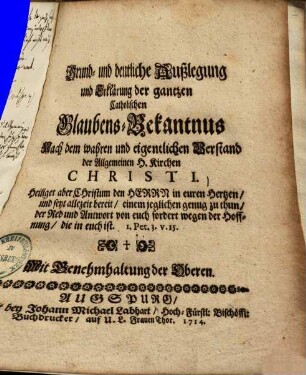 Grund- und deutliche Außlegung
und Erklärung der gantzen
Catholischen
Glaubens-Bekantnus
Nach dem wahren und eigentlichen Verstand
der Allgemeinen H. Kirchen
CHRISTI.
Heiliget aber Christum den HERRN in euren Hertzen /
und seyt allezeit bereit / einem jeglichen genug zu thun /
der Red und Antwort von euch fordert wegen der Hoff-
nung / die in euch ist. 1. Pet. 3. v. 15.
Mit Genehmhaltung der Oberen.
AUGSPURG /
bey Johann Michael Labhart / Hoch-Fürstl: Bischöffl:
Buchdrucker / auf U. L. Frauen Thor. 1714.